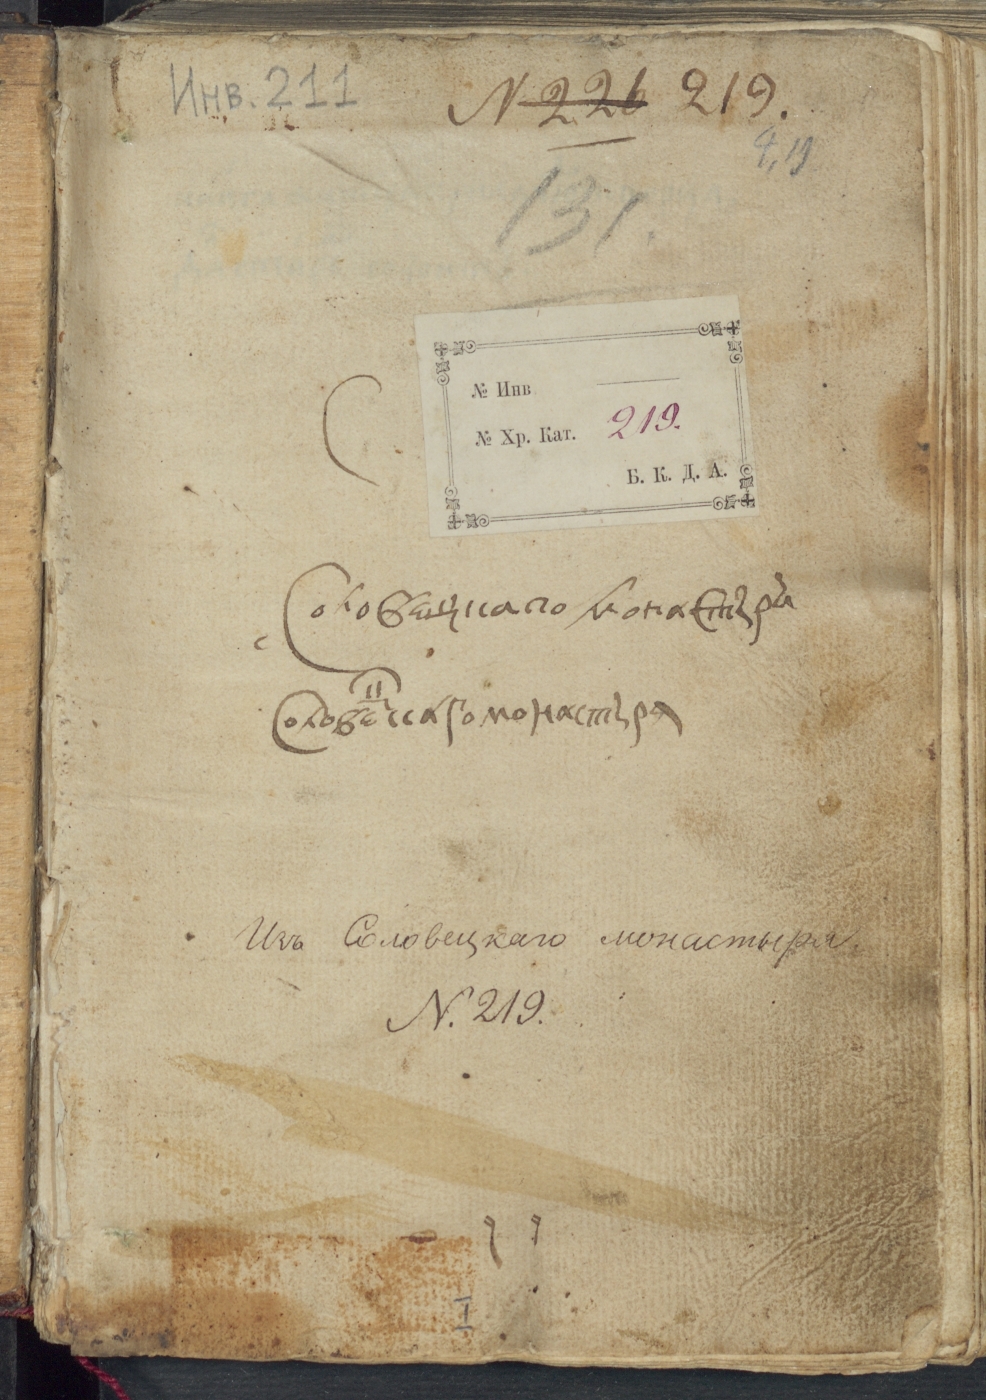 Инв. 211
N 226 219.
131.
№ Инв
№ Хр. Кат. 219.
Б. К. Д. А.
Соловецкаго монастыря
Соловецкаго монастыря
Изъ Соловецкаго монастыря.
N. 219.
I